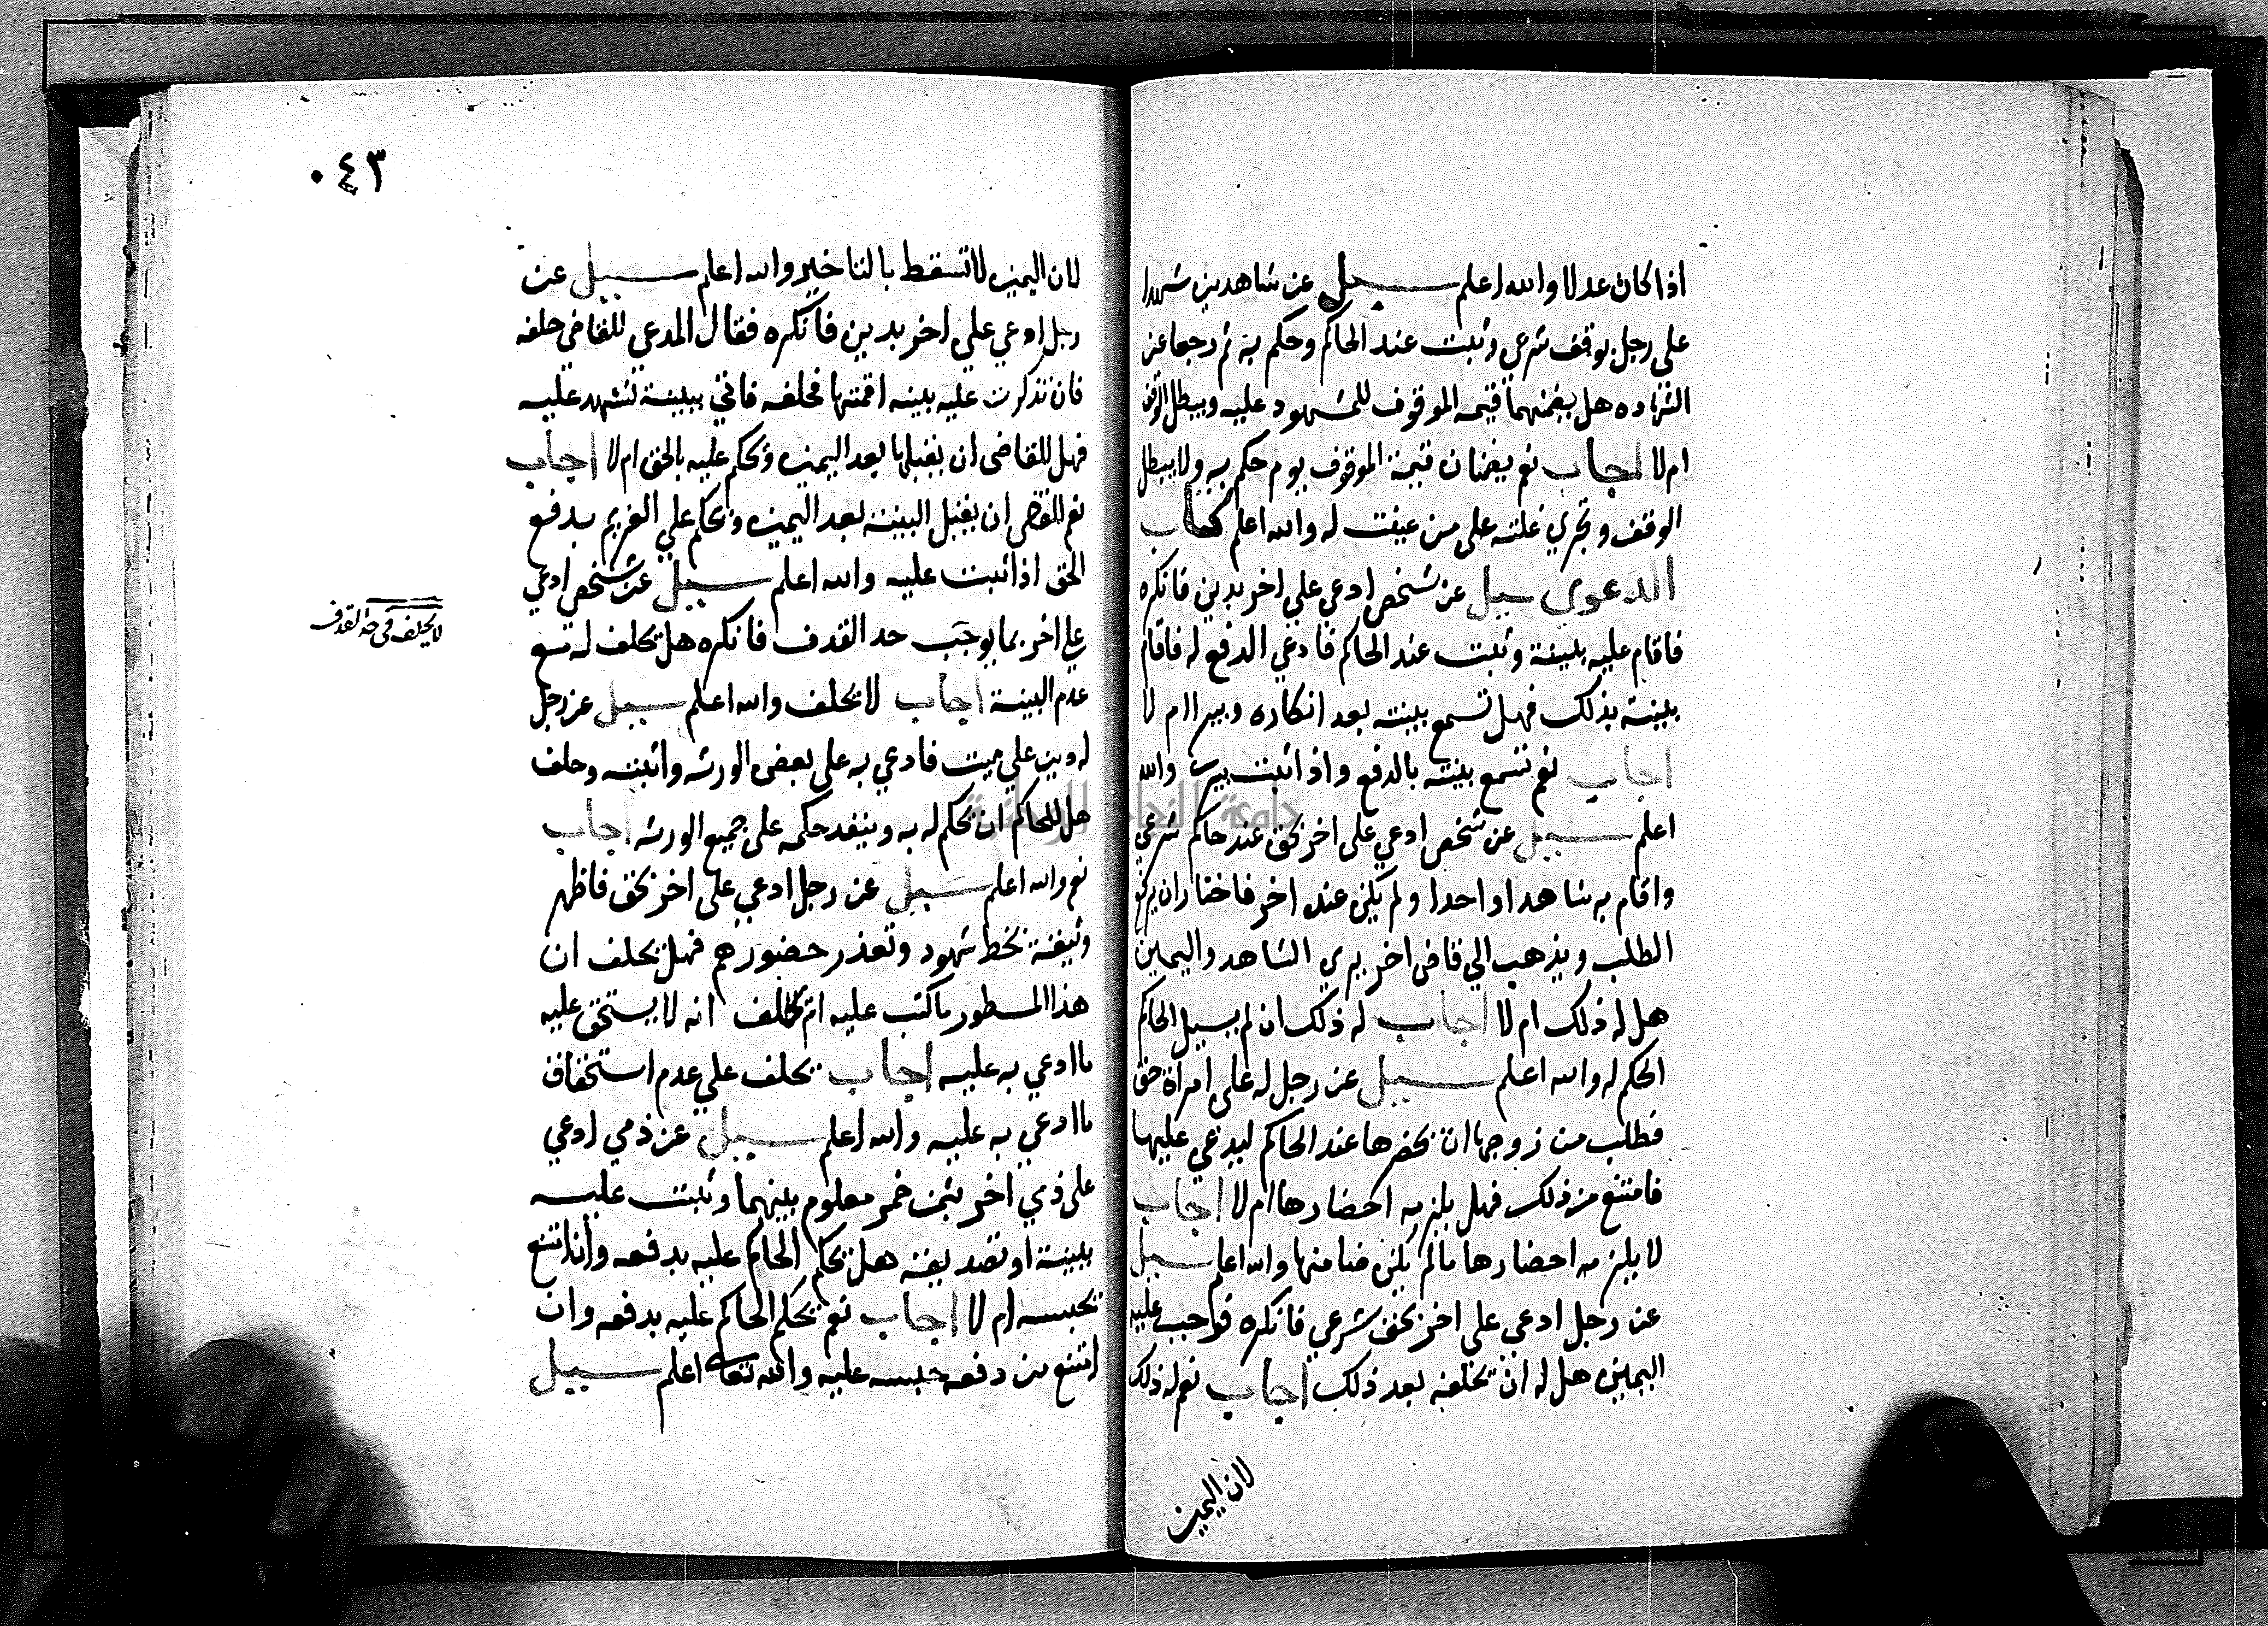 اذا كان عدلا والله اعلم سيل عن شاهدين شهدا
على رجل بوقف شرعي وثبت عند الحاكم وحكم به ثم رجعا عن
الشهاده هل يضمنهما قيمه الموقوف للمشهود عليه ويبطل الوقف
ام لا اجاب نعم يضمنان قيمة الموقوف يوم حكم به ولا يبطل
الوقف وتجري غلته على من عينت له والله اعلم كتاب
الدعوي سيل عن شخص ادعي علي اخر بدين فانكره
فاقام عليه ببينة وثبت عند الحاكم فادعي الدفع له فاقام
ببينة بذلك فهل تسمع بينته بعد انكاره ويبرا ام لا
اجاب نعم تسمع بينته بالدفع واذا ثبت بيرت والله
اعلم سيل عن شخص ادعي على اخر بحق عند حاكم شرعي
واقام به شاهدا واحدا ولم يكن عنده اخر فاختار ان يترك
الطلب ويذهب الي قاض اخر يري الشاهد واليمين
هل له ذلك ام لا اجاب له ذلك ان لم يسيل الحاكم
الحكم له والله اعلم سيل عن رجل له على امراة حق
فطلب من زوجها ان يحضرها عند الحاكم ليدعي عليها
فامتنع من ذلك فهل يلزمه احضارها ام لا اجاب
لا يلزمه احضارها ما لم يكن ضامنها والله اعلم سيل
عن رجل ادعي على اخر بحق شرعي فانكره فوجب عليه
اليمين هل له ان يحلفه بعد ذلك اجاب نعم له ذلك
لان اليمين
٠٤٣
لان اليمين لا تسقط بالتاخير والله اعلم سيل عن
رجل ادعي علي اخر بدين فانكره فقال المدعي للقاضي حلفه
فان تذكرت عليه بينه اقمتها فحلفه فاتي ببينة تشهد عليه
فهل للقاضي ان يقبلها بعد اليمين ويحكم عليه بالحق ام لا اجاب
نعم للقاضي ان يقبل البينة بعد اليمين ويحكم علي الغريم بدفع
الحق اذا ثبت عليه والله اعلم سيل عن شخص ادعي
علي اخر بما يوجب حد القدف فانكره هل يحلف له مع
عدم البينة اجاب لا يحلف والله اعلم سيل عن رجل
له دين علي ميت فادعي به على بعض الورثه واثبته وحلف
هل للحاكم ان يحكم له به وينفد حكمه على جميع الورثه اجاب
نعم والله اعلم سيل عن رجل ادعي على اخر بحق فاظهر
وثيقة بخط شهود وتعذر حضورهم فهل يحلف ان
هذا المسطور ما كتب عليه ام يحلف انه لا يستحق عليه
ما ادعي به عليه اجاب يحلف علي عدم استحقاق
ما ادعي به عليه والله اعلم سيل عن ذمي ادعي
على ذمي اخر بثمن خمر معلوم بينهما وثبت عليه
ببينة او تصديقه هل يحكم الحاكم عليه بدفعه وان امتنع
يحبسه ام لا اجاب نعم يحكم الحاكم عليه بدفعه وان
امتنع من دفعه حبسه عليه والله تعالى اعلم سيل
لا يحلف في حد القدف